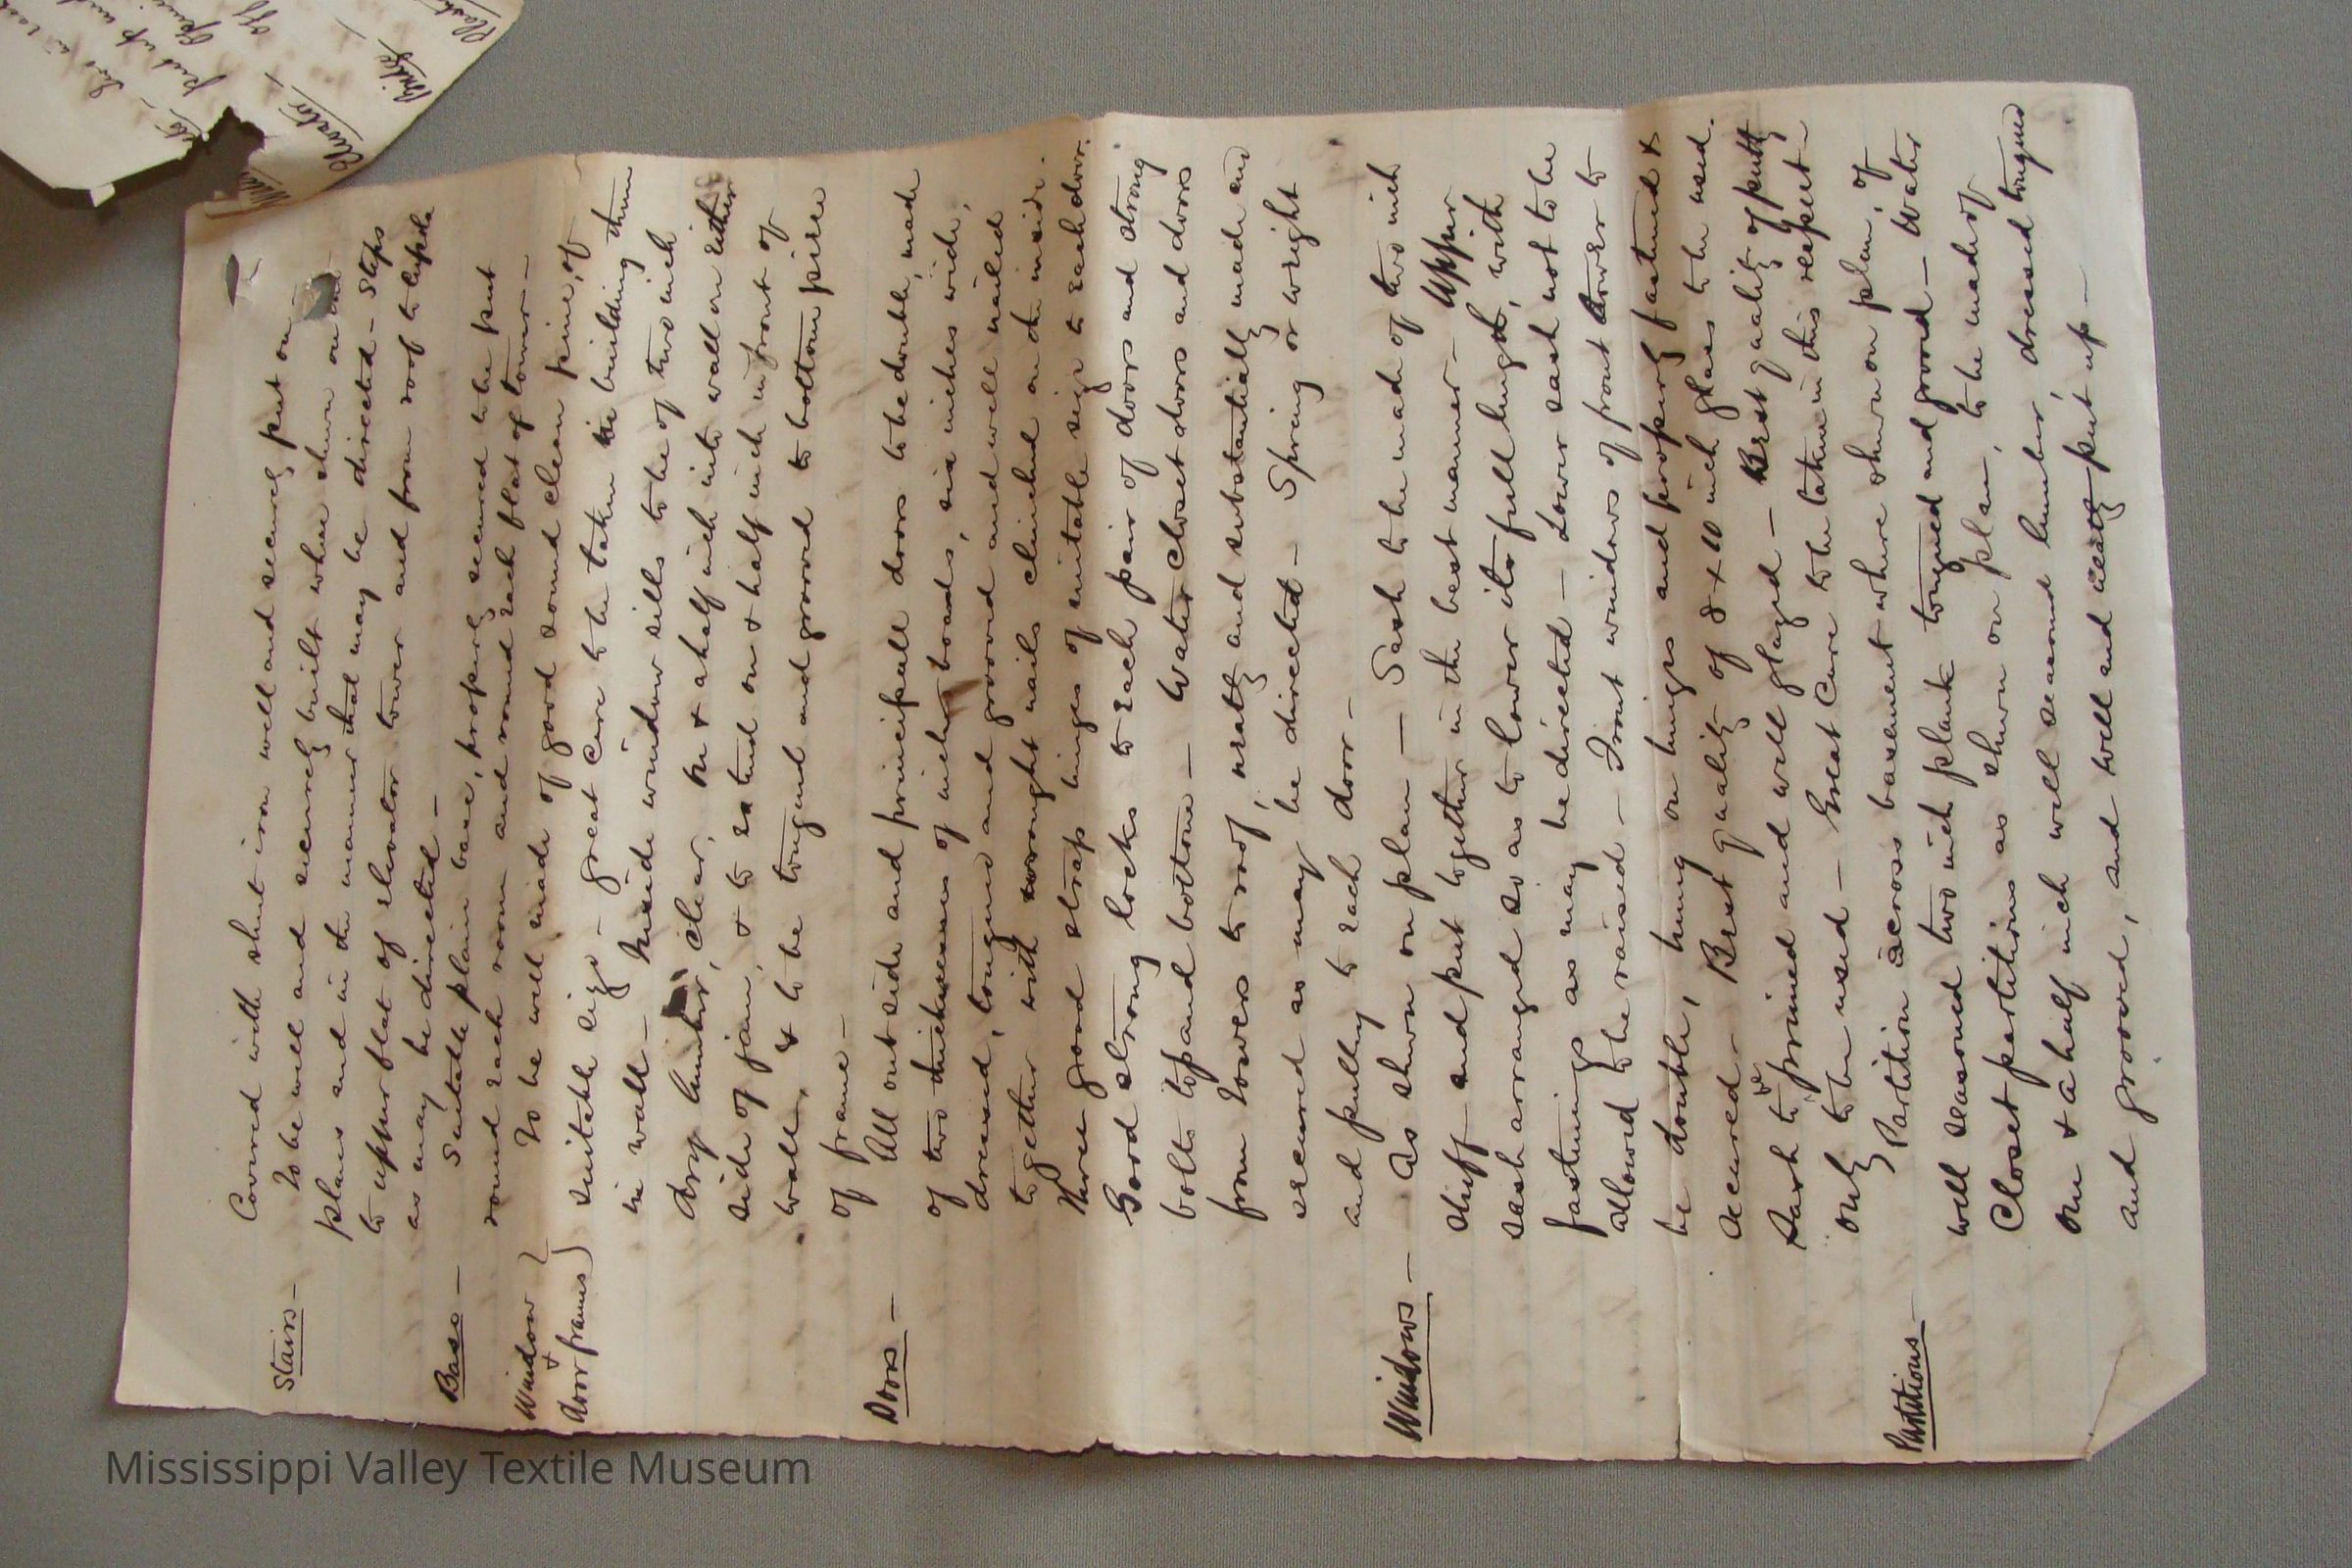 Covered with sheet iron well and securely put on —
Stairs — To be well and securely built where shewn on
plans and in the manner that may be directed — Steps
to upper flat of elevator tower and from roof to cupola
as may be directed —
Base — Suitable plain base, properly secured to be put
round each room and round each flat of tower —
Window & Door frames } To be well made of good sound clean pine, of
suitable size — great care to be taken in building them
in wall — Inside window sills to be of two inch
dry lumber, clear, in & a half inch into wall on either
side of jam, & to extend one & half inch in front of
wall, & to be tongued and grooved to bottom piece
of frame —
Doors — All out side and principall doors to be double, made
of two thicknesses of inch boards, six inches wide,
dressed, tongued and grooved and well nailed
together with wrought nails clinched on the inside.
Three good strap hinges of suitable size to each door.
Good strong locks to each pair of doors and strong
bolts top and bottom — Water closet doors and doors
from towers to roof, neatly and substantially made and
secured as may be directed — Spring or weight
and pully to each door —
Windows — As shewn on plan — Sash to be made of two inch
stuff and put together in the best manner — Upper
sash arranged so as to lower its full length, with
fastenings as may be directed — Lower sash not to be
allowed to be raised — Front windows of front tower to
be double, hung on hinges and properly fastened &
secured — Best quality of 8 x 10 inch glass to be used.
Sash to be primed and well glazed — Best quality of putty
only to be used — Great Care to be taken in this respect —
Partitions — Partition across basement where shewn on plan, of
well seasoned two inch plank tongued and grooved — Water
Closet partitions as shewn on plan, to be made of
one & a half inch well seasoned lumber, dressed tongued
and grooved, and well and neatly put up —
put up and
Elevator
Bridge
Mississippi Valley Textile Museum